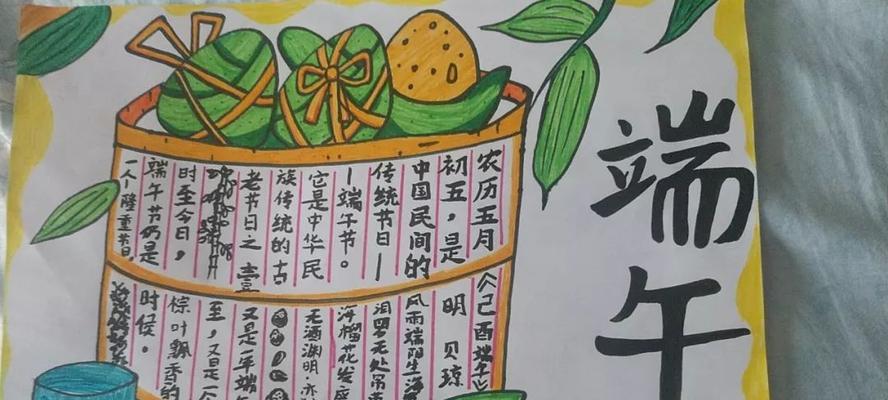 端午
农历五月
初五，是
中国民间的
传统节日—
—端午节。
它是中华民
族传统的古
老节日之
时至今日，
端午节仍是
一个隆重节日，
《己酉端午》
明 贝琼
风雨端阳生
汨罗无处吊
海榴花发应
无酒渊明亦
又是一年端午
至，又是一个
棕叶飘香的
时候。